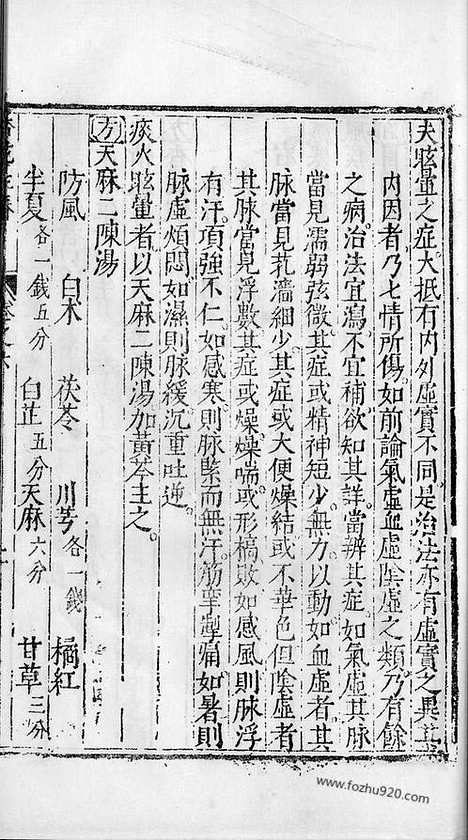 夫眩暈之症大抵有內外虛實不同是治法亦有虛實之異其
內因者乃七情所傷如前論氣虛血虛陰虛之類乃有餘
之病治法宜瀉不宜補欲知其詳當辨其症如氣虛其脉
當見濡弱弦微其症或精神短少無力以動如血虛者其
脉當見芤濇細少其症或大便燥結或不華色但陰虛者
其脉當見浮數其症或燥燥喘或形槁敗如感風則脉浮
有汗項強不仁如感寒則脉緊而無汗筋孿掣痛如暑則
脉虛煩悶如濕則脉緩沉重吐逆
痰火眩暈者以天麻二陳湯加黃芩主之
方天麻二陳湯
防風 白术 茯苓 川芎各一錢 橘紅
半夏各一錢五分 白芷五分 天麻六分 甘草三分
www.fozhu920.com